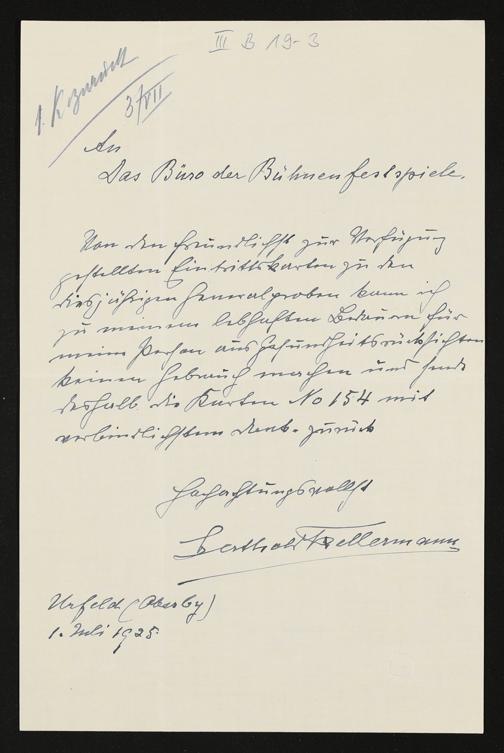 III B 19-3
1 K zurück
3/VII
An
Das Büro der Bühnenfestspiele.
Von den freundlichst zur Verfügung
gestellten Eintrittskarten zu den
diesjährigen Generalproben kann ich
zu meinem lebhaften Bedauern für
meine Person aus Gesundheitsrücksichten
keinen Gebrauch machen und sende
deshalb die Karten No 154 mit
verbindlichstem Dank zurück
Hochachtungsvollst
Berthold Kellermann
Urfeld (Oberby)
1. Juli 1925.